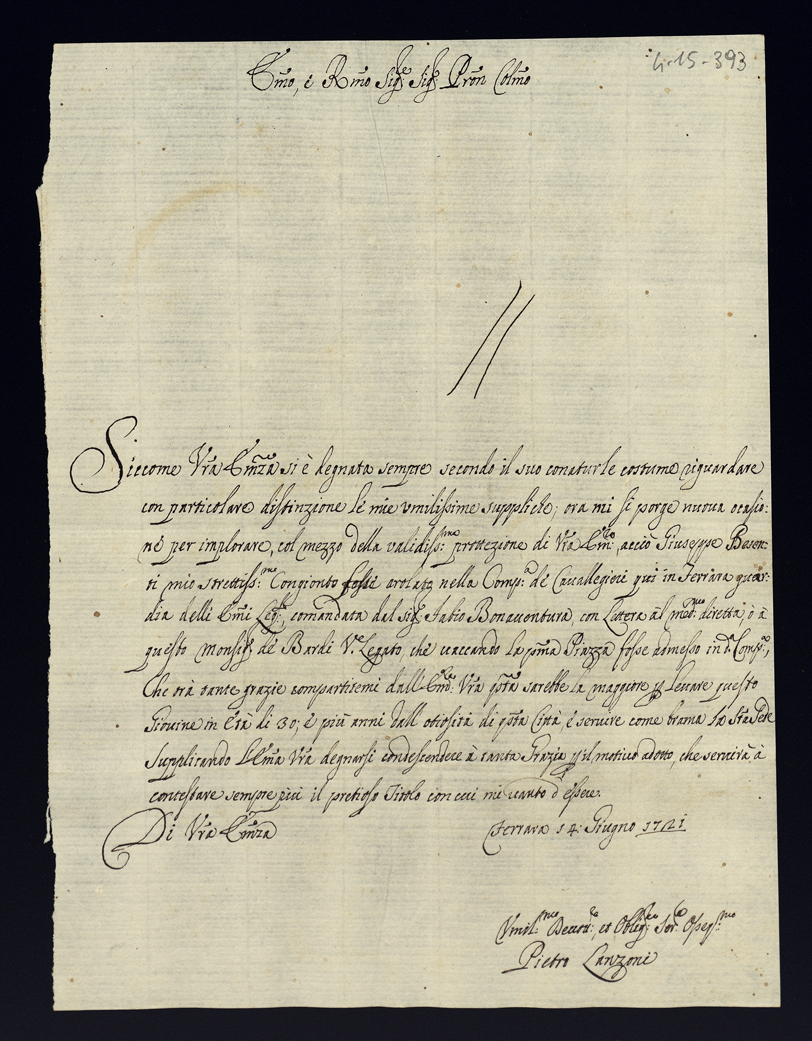 4-15-393
Emo, e Rmo Sigre Sigre Pron Colmo
Siccome Vra Emza si è degnata sempre secondo il suo conaturle costume riguardare
con particolare distinzione le mie umilissime suppliche; ora mi si porge nuova ocasio:
ne per implorare, col mezzo della validiss:ma protezione di Vra Em:, acciò Giuseppe Besen:
ti mio strettiss:mo Congionto fosse arolato nella Comp:a de Cavallegieri qui in Ferrara guar:
dia delli Emi Leg:, comandata dal Sigr Fabio Bonaventura, con Lettera al med:mo diretta, ò à
questo Monsigr de Bardi V.e Legato, che vaccando la pma Piazza fosse admesso in da Comp:a,
Che trà tante grazie compartitemi dall Vra qsta sarebbe la maggiore p levare questo
Giovine in Età di 30; è più anni dall otiosità di qsta Città, è servire come brama la Sta Sede
Supplicando l'Ema Vra degnarsi condescendere à tanta Grazia p il motivo adotto, che servirà à
contestare sempre più il pretioso Titolo con cui mi vanto d'essere.
Di Vra Emza
Ferrara 14: Giugno 1721
Umil:mo Devot:, et Oblig: Ser: Osseq:mo
Pietro Lanzoni